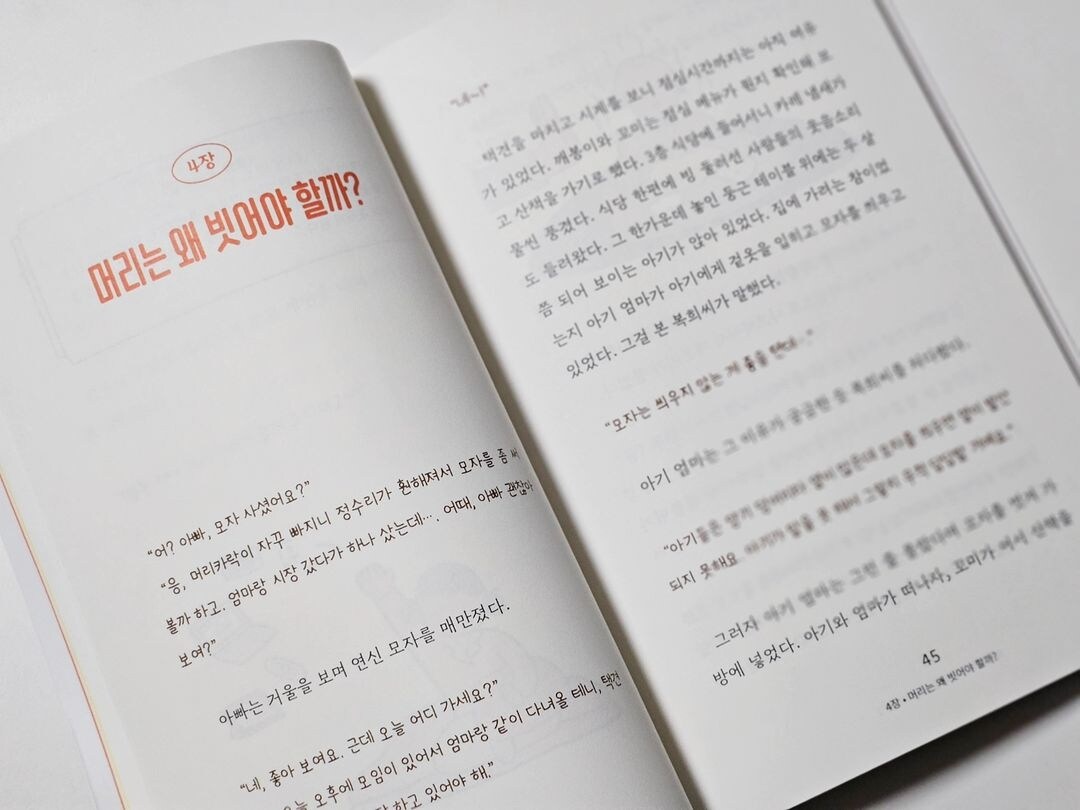 4장
머리는 왜 빗어야 할까?
“어? 아빠, 모자 사셨어요?”
“응, 머리카락이 자꾸 빠지니 정수리가 훤해져서 모자를 좀 써
볼까 하고. 엄마랑 시장 갔다가 하나 샀는데…. 어때, 아빠 괜찮아
보여?”
아빠는 거울을 보며 연신 모자를 매만졌다.
“네, 좋아 보여요. 근데 오늘 어디 가세요?”
오늘 오후에 모임이 있어서 엄마랑 같이 다녀올 테니, 택견
하고 있어야 해.”
“네~!”
택견을 마치고 시계를 보니 점심시간까지는 아직 여유
가 있었다. 깨봉이와 꼬미는 점심 메뉴가 뭔지 확인해 보
고 산책을 가기로 했다. 3층 식당에 들어서니 카레 냄새가
물씬 풍겼다. 식당 한편에 빙 둘러선 사람들의 웃음소리
도 들려왔다. 그 한가운데 놓인 둥근 테이블 위에는 두 살
쯤 되어 보이는 아기가 앉아 있었다. 집에 가려는 참이었
는지 아기 엄마가 아기에게 겉옷을 입히고 모자를 씌우고
있었다. 그걸 본 복희씨가 말했다.
“모자는 씌우지 않는 게 좋을 텐데…”
아기 엄마는 그 이유가 궁금한 듯 복희씨를 쳐다봤다.
“아기들은 열이 많은데 모자를 씌우면 열이 발산
되지 못해요. 아기가 말을 못 해서 그렇지 무척 답답할 거예요.”
그러자 아기 엄마는 그런 줄 몰랐다며 모자를 벗겨 가
방에 넣었다. 아기와 엄마가 떠나자, 꼬미가 어서 산책을
45
4장 • 머리는 왜 빗어야 할까?